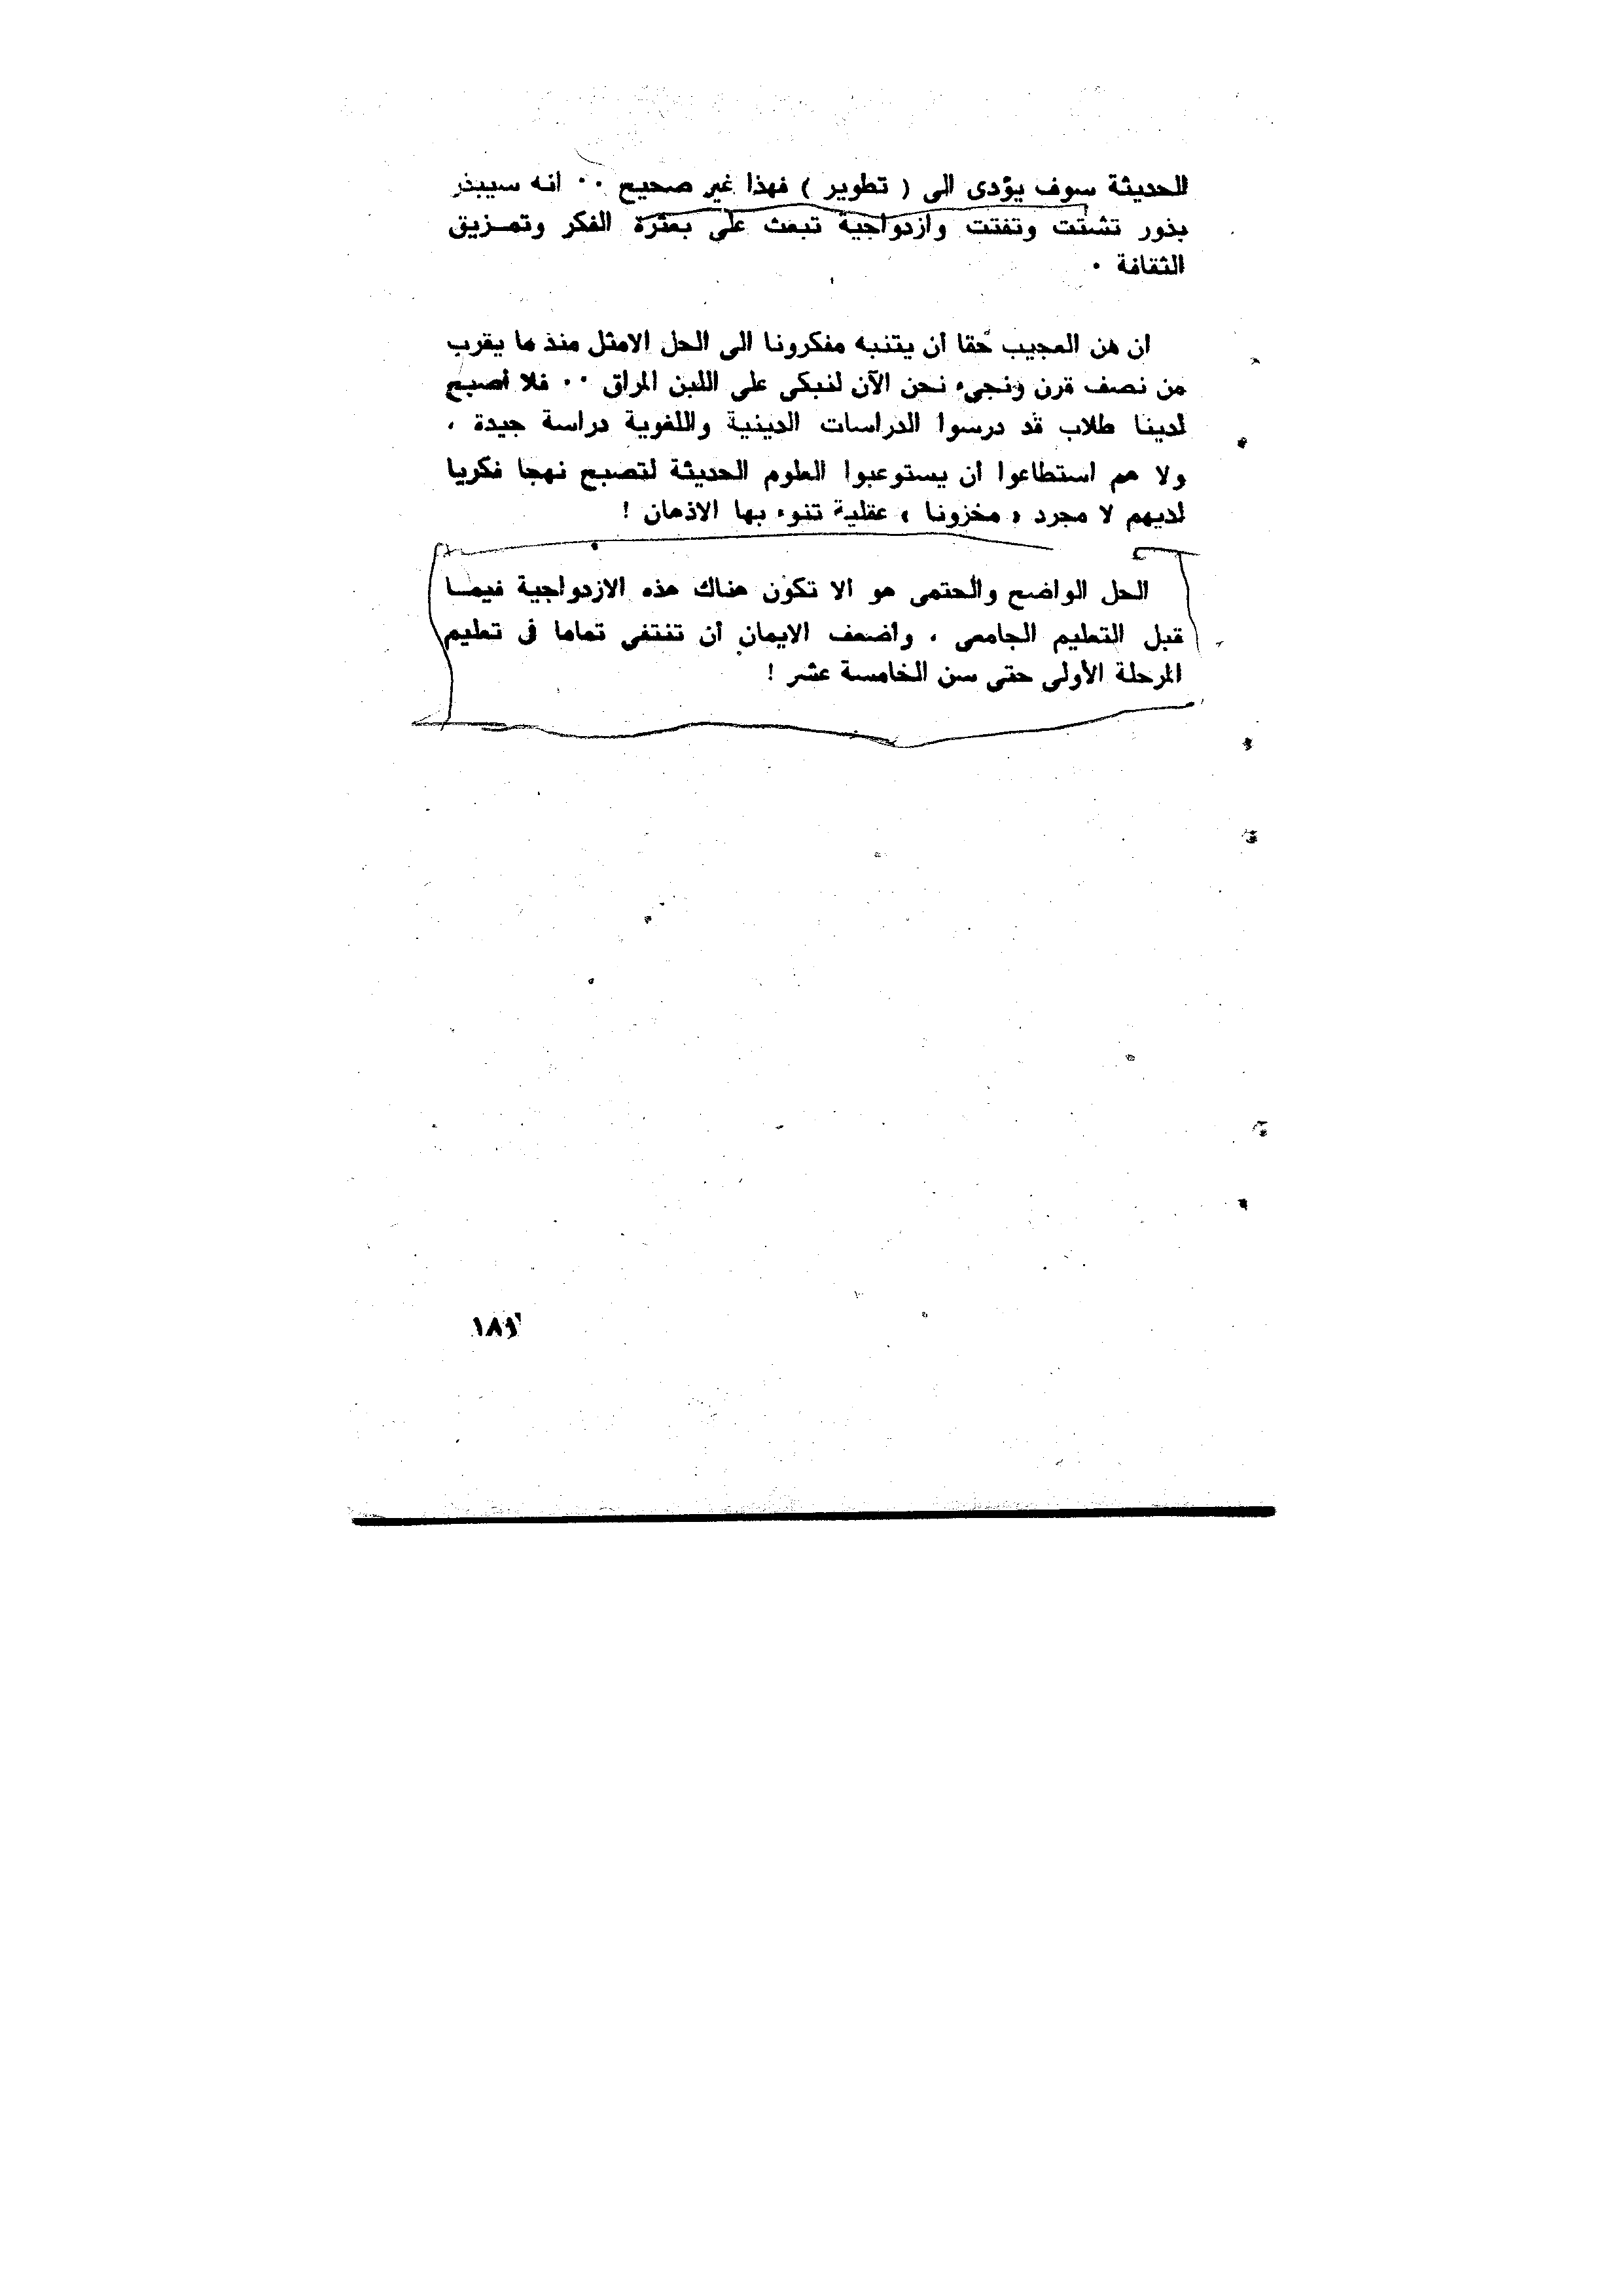 الحديثة سوف يؤدى الى ( تطوير ) فهذا غير صحيح ٠٠ انه سيبذر
بذور تشتت وتفتت وازدواجية تبعث على بعثرة الفكر وتمـزيق
الثقافة ٠
ان من العجيب حقا أن يتنبه مفكرونا الى الحل الامثل منذ ما يقرب
من نصف قرن ونجىء نحن الآن لنبكى على اللبن المراق ٠٠ فلا أصبح
لدينا طلاب قد درسوا الدراسات الدينية واللغوية دراسة جيدة ،
ولا هم استطاعوا أن يستوعبوا العلوم الحديثة لتصبح نهجا فكريا
لديهم لا مجرد « مخزونا » عقلية تنوء بها الاذهان !
الحل الواضح والحتمى هو ألا تكون هناك هذه الازدواجية فيمـا
قبل التعليم الجامعى ، وأضعف الايمان أن تنتفى تماما فى تعليم
المرحلة الأولى حتى سن الخامسة عشر !